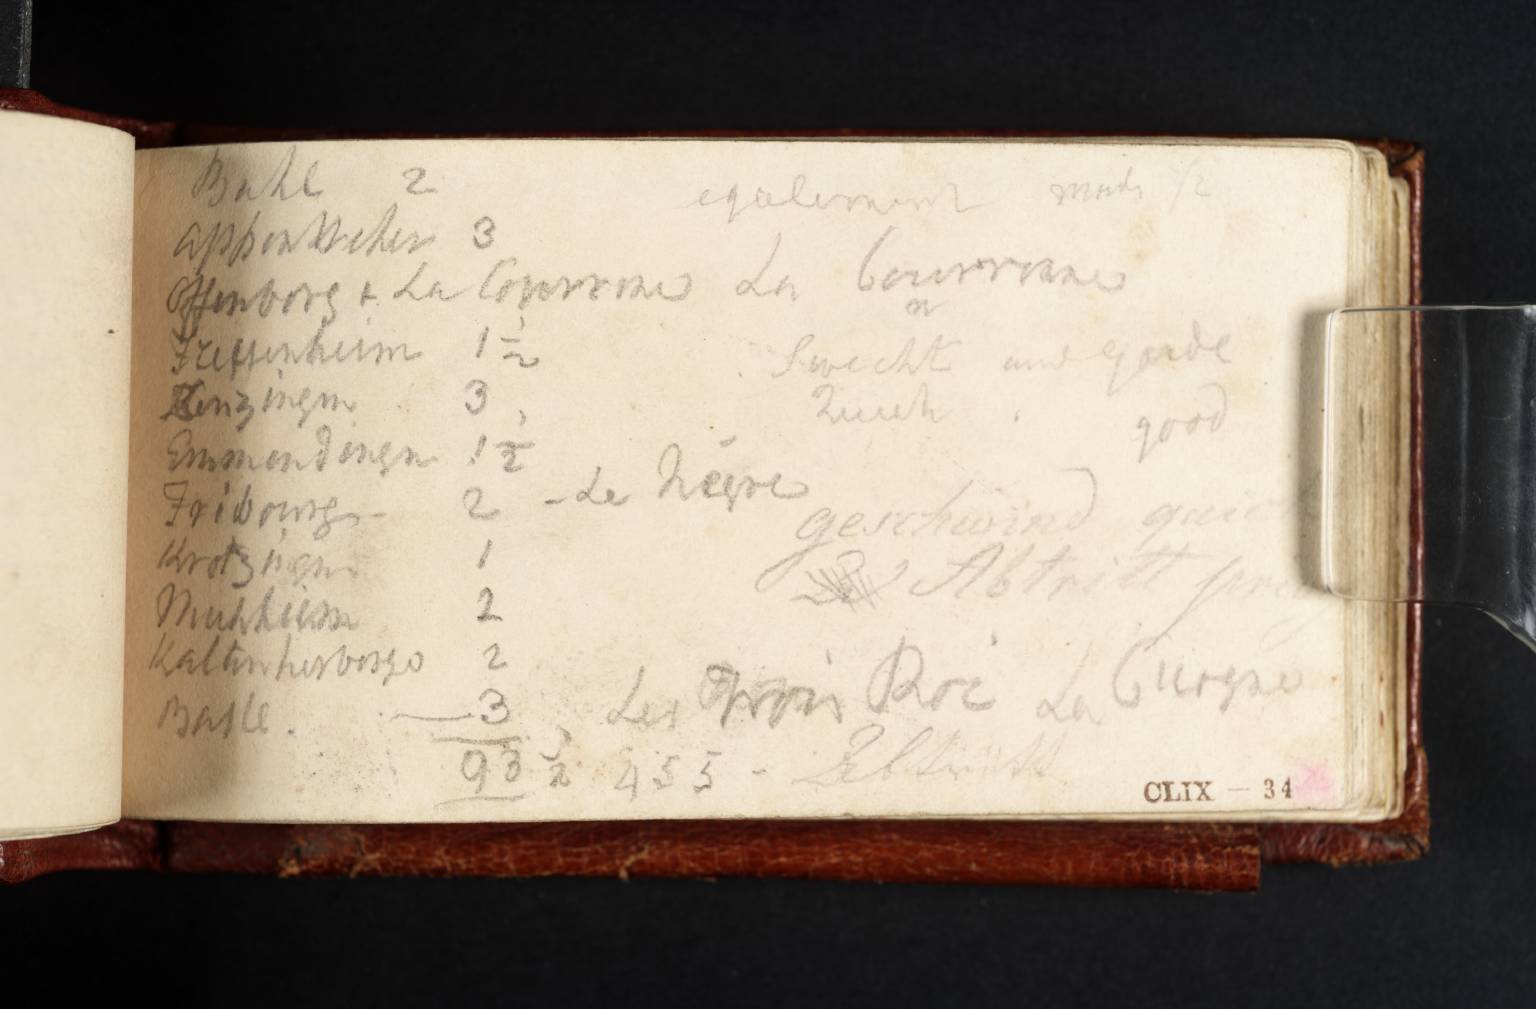 Buhl 2 egalement
Appenweher 3
Offenborg + La Couronne La Couronne
n
Friesenheim 1 1/2 und
Kenzingn 3 good
Emmendingn 1 1/2
Fribourg - 2 - Le Nègre
geschwind quick
Krotzingn 1 Abtritt
Mulhheim 2
Kaltenherborge 2
Basle. 3 Les Trois Roi La Cicogne
93 1/2 455 - Abtritt
CLIX - 34